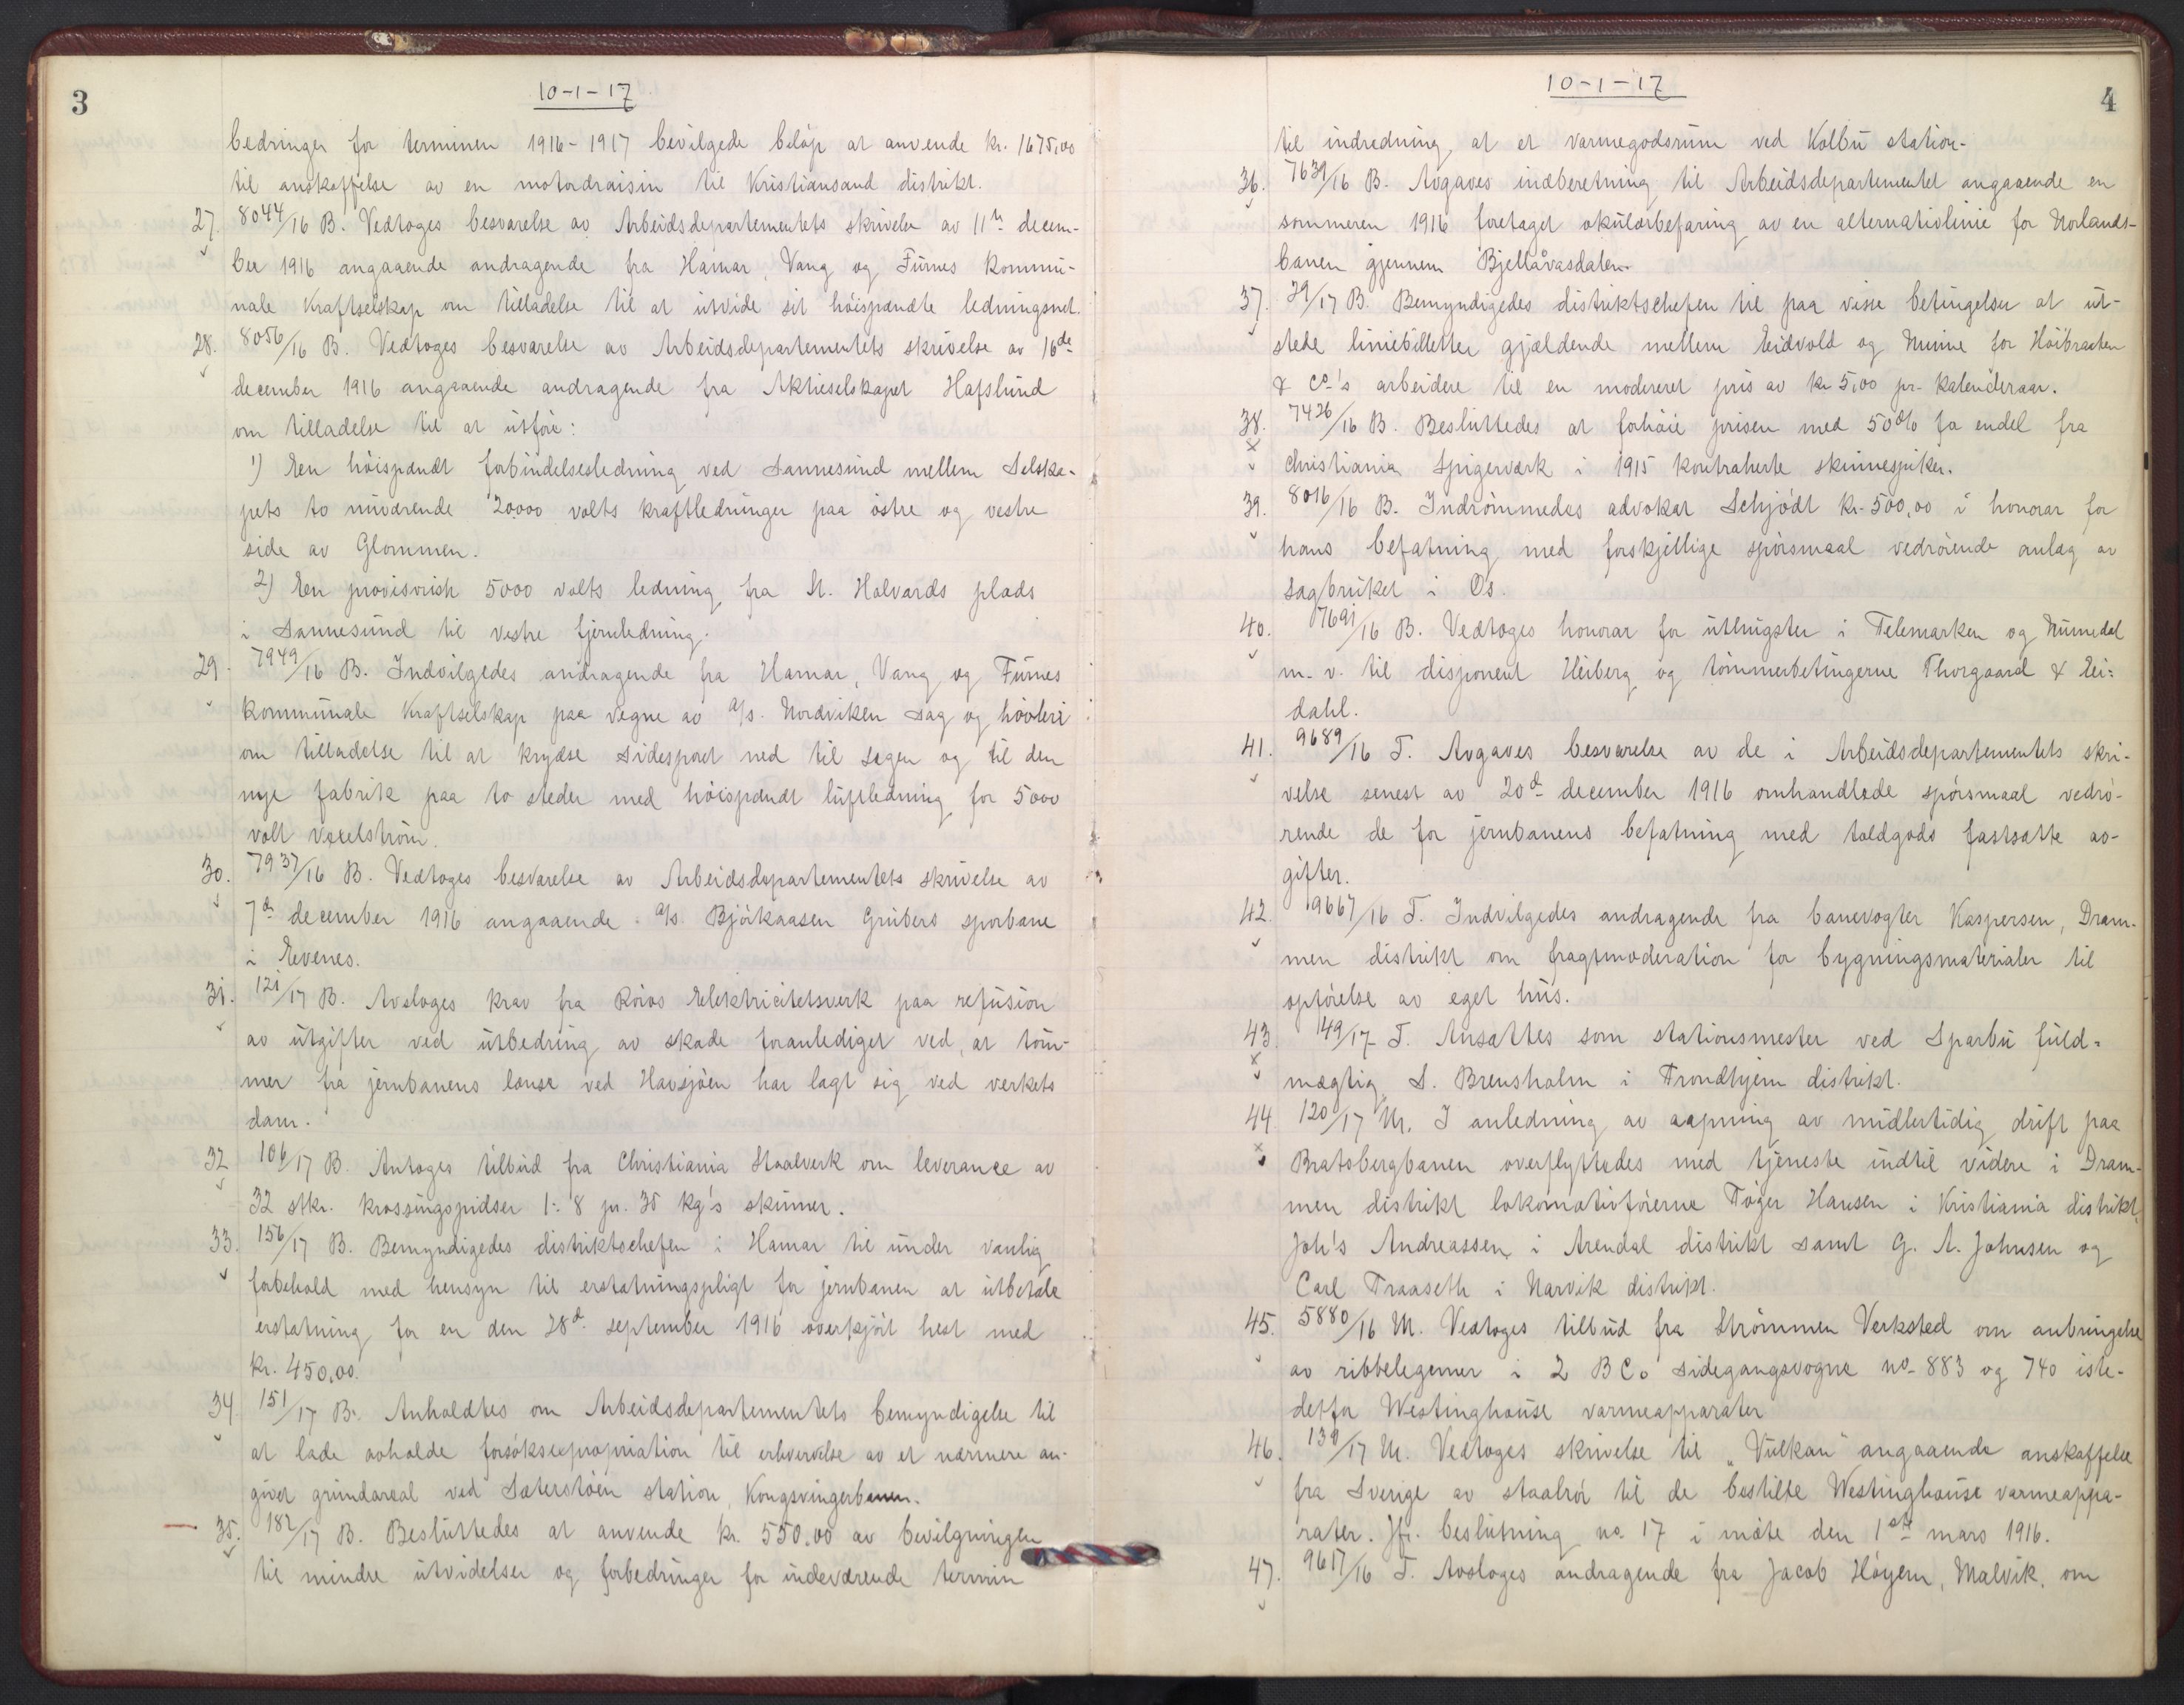 3
10-1-17
bedringer for terminen 1916-1917 bevilgede beløp at anvende kr. 1675,00
til anskaffelse av en motordraisin til Kristiansand distrikt.
27. 8044/16 B. Vedtoges besvarelse av Arbeidsdepartementets skrivelse av 11te decem-
ber 1916 angaaende andragende fra Hamar, Vang og Furnes kommu-
nale kraftselskap om tilladelse til at utvide sit høispændte ledningsnet.
28. 8056/16 B. Vedtoges besvarelse av Arbeidsdepartementets skrivelse av 16de
december 1916 angaaende andragende fra Aktieselskapet Hafslund
om tilladelse til at utføre:
1) En høispændt forbindelsesledning ved Sannesund mellem Selska-
pets to nuværende 20000 volts kraftledninger paa østre og vestre
side av Glommen.
2) En provisorisk 5000 volts ledning fra St. Halvards plads
i Sannesund til vestre fjernledning.
29. 7949/16 B. Indvilgedes andragende fra Hamar, Vang og Furnes
kommunale Kraftselskap paa vegne av a/s. Nordviken sag og høvleri
om tilladelse til at krydse sidesporet ned til sagen og til den
nye fabrik paa to steder med høispændt luftledning for 5000
volt vexelstrøm.
30. 7937/16 B. Vedtoges besvarelse av Arbeidsdepartementets skrivelse av
7de december 1916 angaaende a/s. Bjørkaasen Grubers sporbane
i Evenes.
31. 121/17 B. Avsloges krav fra Røros Elektricitetsverk paa refusion
av utgifter ved utbedring av skade foranlediget ved, at tøm-
mer fra jernbanens lænse ved Havsjøen har lagt sig ved verkets
dam.
32 106/17 B. Antoges tilbud fra Christiania Staalverk om leverance av
32 stkr. krossingspidser 1:8 pr. 35 kg's skinner.
33. 156/17 B. Bemyndigedes distriktschefen i Hamar til under vanlig
forbehold med hensyn til erstatningspligt for jernbanen at utbetale
erstatning for en den 28de september 1916 overkjørt hest med
kr. 450,00.
34 151/17 B. Anholdtes om Arbeidsdepartementets bemyndigelse til
at lade avholde forsøksexpropriation til erhvervelse av et nærmere an-
givet grundareal ved Sæterstøen station, Kongsvingerbanen.
35. 182/17 B. Besluttedes at anvende kr. 550.00 av bevilgningen
til mindre utvidelser og forbedringer for indeværende termin
4
10-1-17
til indredning at et varmegodsrum ved Kolbu station.
36. 7639/16 B. Avgaves indberetning til Arbeidsdepartementet angaaende en
sommeren 1916 foretaget okulærbefaring av en alternativlinie for Norlands-
banen gjennem Bjellåvasdalen.
37. 29/17 B. Bemyndigedes distriktschefen til paa visse betingelser at ut-
stede liniebilletter gjældende mellem Eidvold og Minne for Høibraaten
& Co's arbeidere til en modereret pris av kr 5,00 pr. kalenderaar.
38. 7426/16 B. Besluttedes at forhøie prisen med 50% for endel fra
Christiania Spigerværk i 1915 kontraherte skinnespiker.
39. 8016/16 B. Indrømmedes advokat Schjødt kr. 500,00 i honorar for
hans befatning med forskjellige spørsmaal vedrørende anlæg av
sagbruket i Os.
40. 7691/16 B. Vedtoges honorar for uthugster i Telemarken og Numedal
m. v. til disponent Heiberg og tømmerbetingerne Thorgaard & Ei-
dahl.
41. 9689/16 T. Avgaves besvarelse av de i Arbeidsdepartementets skri-
velse senest av 20de december 1916 omhandlede spørsmaal vedrø-
rende de for jernbanens befatning med toldgods fastsatte av-
gifter.
42. 9667/16 T. Indvilgedes andragende fra banevogter Kaspersen, Dram-
men distrikt om fragtmoderation for bygningsmaterialer til
opførelse av eget hus.
43. 149/17 T. Ansattes som stationsmester ved Sparbu fuld-
mægtig S. Brensholm i Trondhjem distrikt.
44 120/17 M. I anledning av aapning av midlertidig drift paa
Bratsbergbanen overflyttedes med tjeneste indtil videre i Dram-
men distrikt lokomotivførerne Tøger Hansen i Kristiania distrikt,
Joh's Andreassen i Arendal distrikt samt G. A. Johnsen og
Carl Traaseth i Narvik distrikt.
45. 5880/16 M. Vedtoges tilbud fra Strømmen Verksted om anbringelse
av ribbelegemer i 2 BCo sidegangsvogne no. 883 og 740 iste-
detfor Westinghouse varmeapparater
46. 130/17 M. Vedtoges skrivelse til "Vulkan" angaaende anskaffelse
fra Sverige av staalrør til de bestilte Westinghouse varmeappa-
rater. Jfr. beslutning no. 17 i møte den 1ste mars 1916.
47. 9617/16 T. Avsloges andragende fra Jacob Høyem, Malvik, om